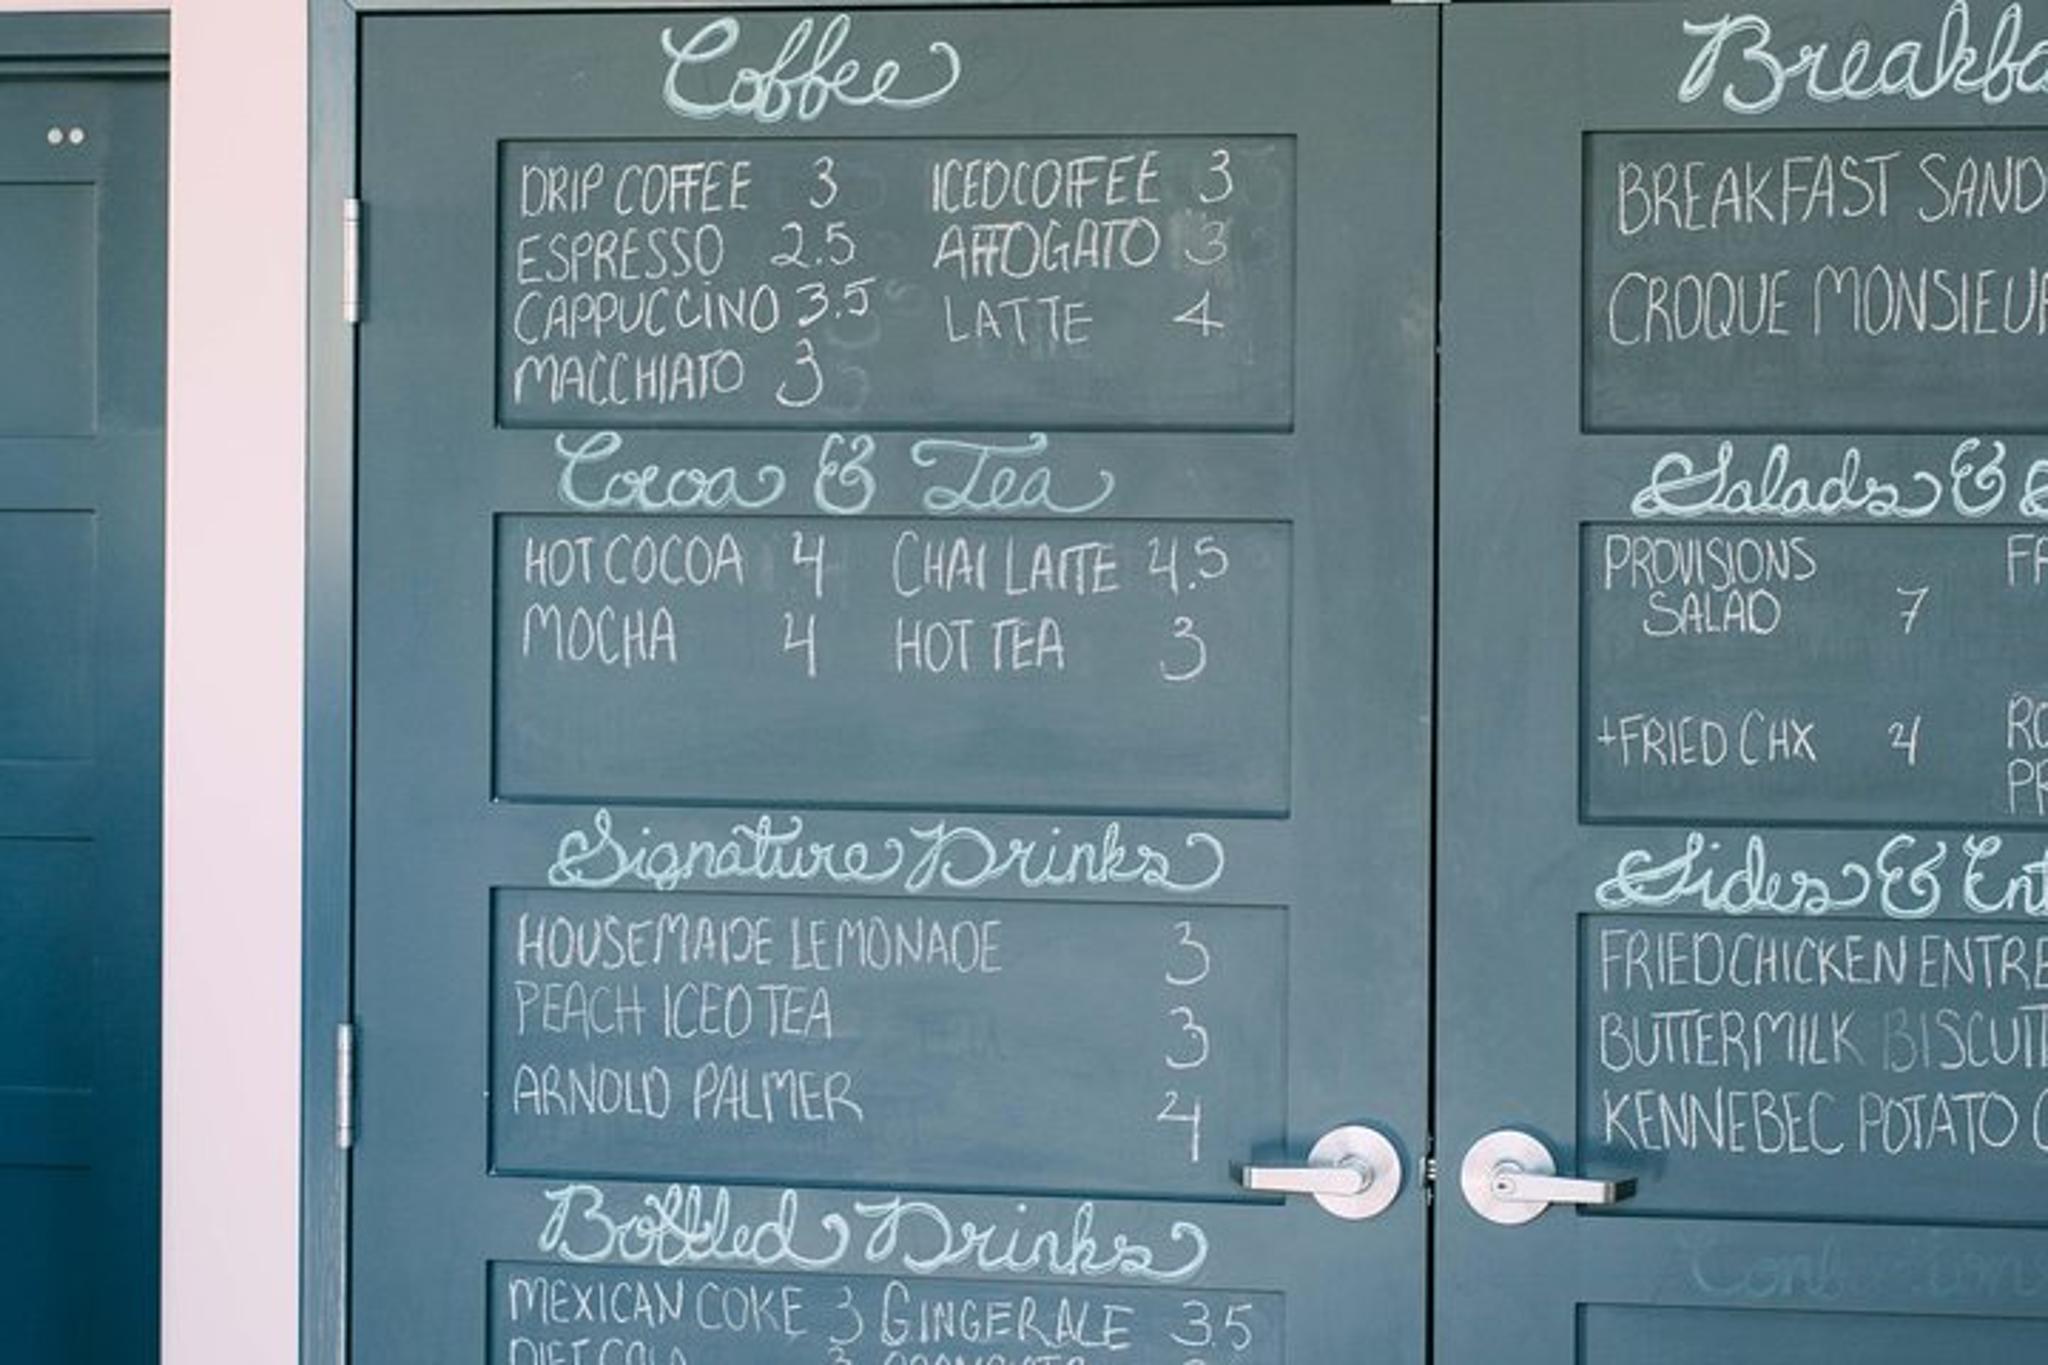 Coffee
DRIP COFFEE 3 ICED COFFEE 3
ESPRESSO 2.5 AFFOGATO 3
CAPPUCCINO 3.5 LATTE 4
MACCHIATO 3
Cocoa & Tea
HOT COCOA 4 CHAI LATTE 4.5
MOCHA 4 HOT TEA 3
Signature Drinks
HOUSEMADE LEMONADE 3
PEACH ICED TEA 3
ARNOLD PALMER 4
Bottled Drinks
MEXICAN COKE 3 GINGERALE 3.5
DIET
Breakfa
BREAKFAST SAND
CROQUE MONSIEUR
Salads &
PROVISIONS FA
SALAD 7
+FRIED CHX 4 RO
PR
Sides & Ent
FRIED CHICKEN ENTRE
BUTTERMILK BISCUIT
KENNEBEC POTATO C